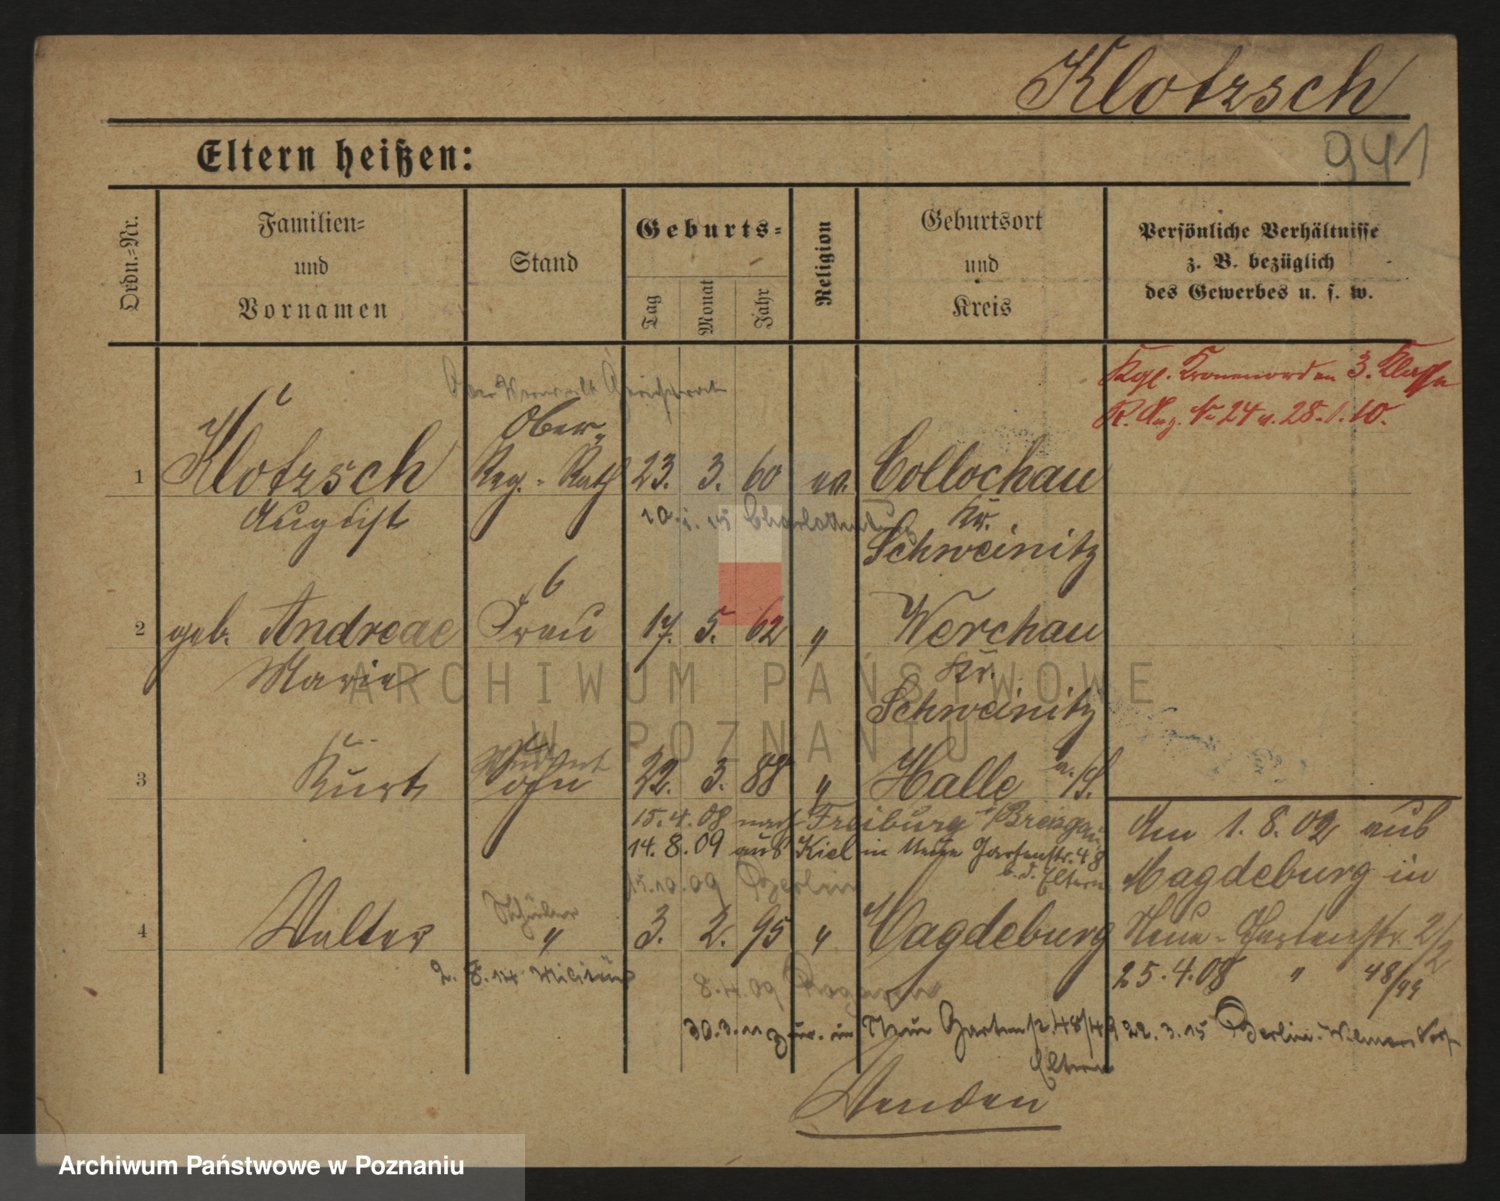 Klotzsch
941
Eltern heißen:
Ordn.-Nr.
Familien-
und
Vornamen
Stand
Geburts-
Tag
Monat
Jahr
Religion
Geburtsort
und
Kreis
Persönliche Verhältnisse
z. B. bezüglich
des Gewerbes u. s. w.
Kgl. Kronenorden 3. Klasse
R. Anz. No 24 v. 28.1.10.
Ober-
1 Klotzsch Reg.-Rath 23. 3. 60 ev. Collochau
August Kr.
10. 1. 15 Charlottenburg
Schweinitz
2 geb. Andreae Frau 17. 5. 62 " Werchau
Marie Kr.
Schweinitz
3 Kurt Sohn 22. 3. 88 " Halle a./S.
15.4.08 nach Freiburg i/Breisgau
14.8.09 aus Kiel in Neue Gartenstr. 48
b. d. Eltern
15.10.09 Berlin
Schüler
4 Walter " 3. 2. 95 " Magdeburg
2. 8. 14 Militär
8.4.09
30.3.11 zur. in Neue Gartenstr. 48/49
Eltern
Am 1.8.02 aus
Magdeburg in
Neue-Gartenstr. 2/2
25.4.08 " 48/49
22.3.15 Berlin-Wilmersdorf
Wenden
ARCHIWUM PAŃSTWOWE
W POZNANIU
Archiwum Państwowe w Poznaniu